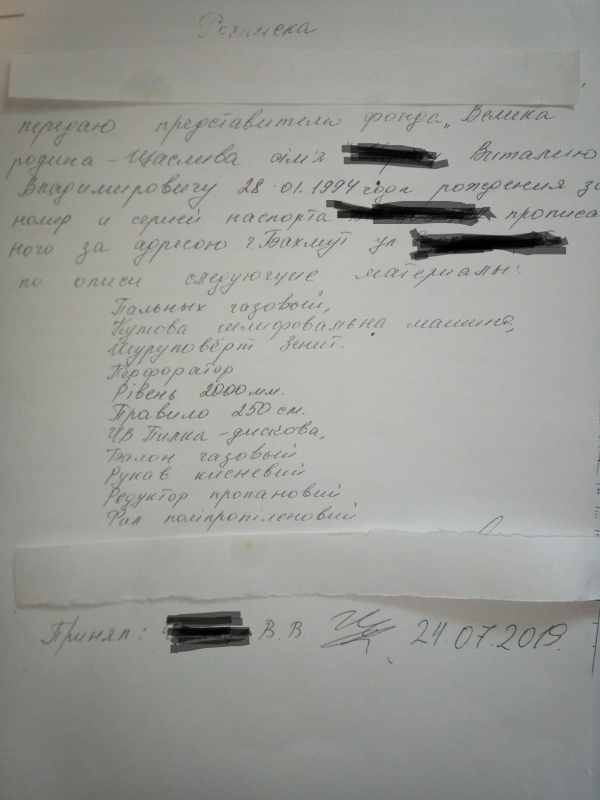 Розписка
передаю представителю фонда „Велика
родина - Щаслива сім'я Виталию
Владимировичу 28.01.1994 года рождения за
номер и серией паспорта прописа
ного за адресою г.Бахмут ул
по описи следующие материалы:
Пальных газовый,
Кутова шлифовальна машина,
Шуруповёрт Зенит.
Перфоратор
Рівень 2000 мм.
Правило 250 см.
Пилка - дискова,
Балон газовый
Рукав кисневий
Редуктор пропановий
Фал поліпропіленовий
Принял: В.В 24.07.2019.